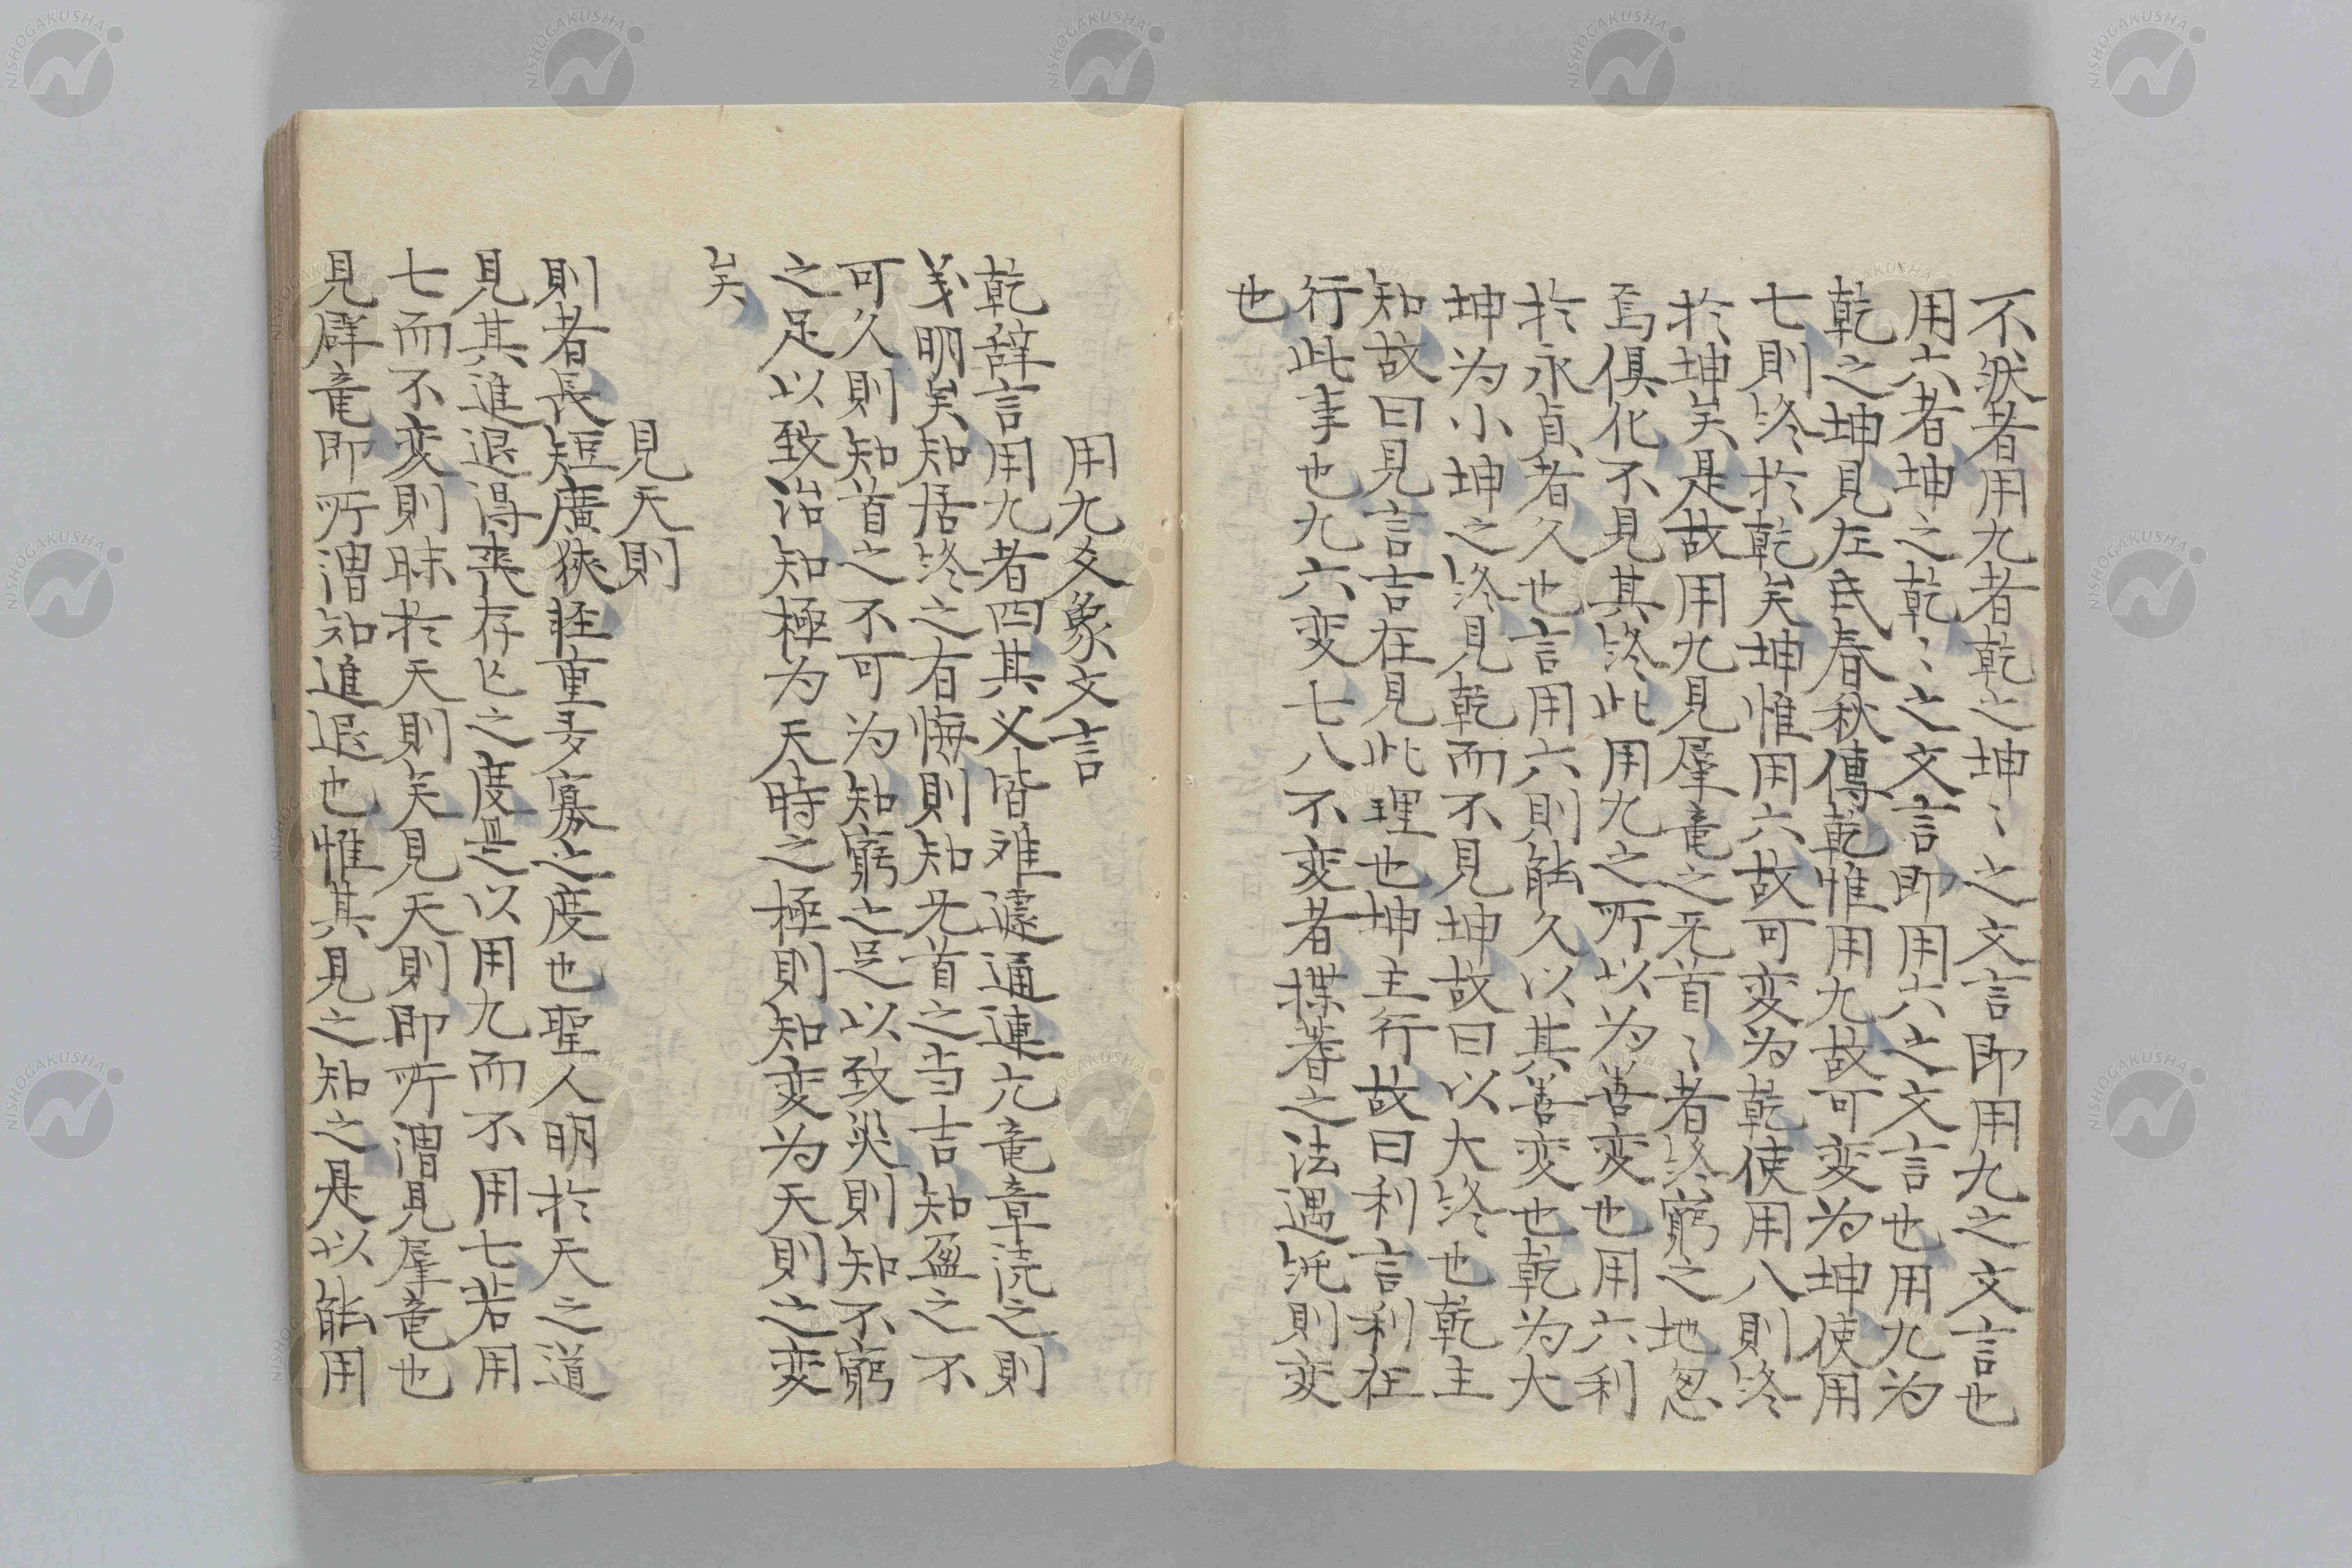 不然者用九者乾之坤〻之文言即用九之文言也
用六者坤之乾〻之文言即用六之文言也用九为
乾之坤見左氏春秋傳乾惟用九故可変为坤使用
七則終於乾矣坤惟用六故可変为乾使用八則終
於坤矣是故用九見羣竜之无首〻者終窮之地忽
焉俱化不見其終此用九之所以为善変也用六利
於永貞者久也言用六則能久以其善変也乾为大
坤为小坤之終見乾而不見坤故曰以大終也乾主
知故曰見言吉在見此理也坤主行故曰利言利在
行此事也九六変七八不変者揲蓍之法遇純則変
也
用九爻象文言
乾辞言用九者四其义皆难遽通連亢竜章读之則
义明矣知居終之有悔則知无首之当吉知盈之不
可久則知首之不可为知窮之足以致災則知不窮
之足以致治知極为天時之極則知変为天則之変
矣
見天則
則者長短廣狹輕重多寡之度也聖人明於天之道
見其進退得丧存亾之度是以用九而不用七若用
七而不変則昧於天則矣見天則即所谓見羣竜也
見群竜即所谓知進退也惟其見之知之是以能用